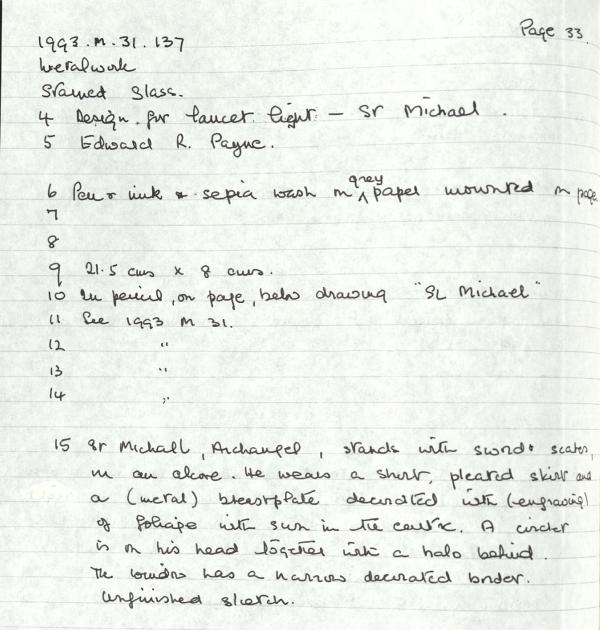 Page 33.
1993.M.31.137
Stained Glass.
4 Design for lancet light - St Michael.
5 Edward R. Payne.
6 Pen & ink & sepia wash on grey paper mounted on page.
7
8
9 21.5 cms x 8 cms.
10 In pencil, on page, below drawing "St Michael"
11 See 1993 M 31.
12 "
13 "
14 "
15 St Michael, Archangel, stands with sword & scales,
in an alcove. He wears a short, pleated skirt and
a (metal) breastplate decorated with (engraving)
of foliage with sun in the centre. A circlet
is on his head together with a halo behind.
The window has a narrow decorated border.
Unfinished sketch.